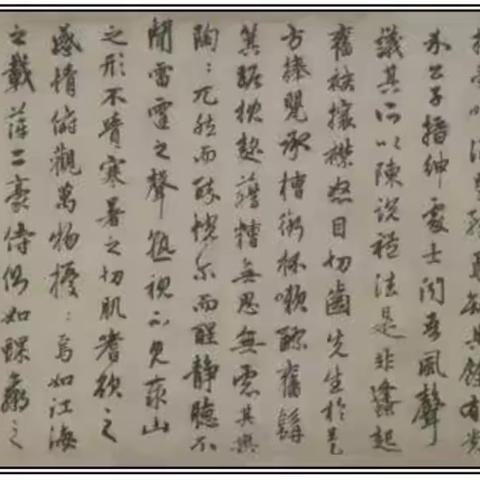 其餘有貴
介公子搢紳處士聞吾風聲
議其所以陳說禮法是非鋒起
奮袂攘襟怒目切齒先生於是
方捧甖承槽銜杯漱醪奮髯
箕踞枕麴藉糟無思無慮其樂
陶:兀然而醉恍尔而醒靜聽不
聞雷霆之聲熟視不見泰山
之形不覺寒暑之切肌嗜欲之
感情俯觀萬物擾:焉如江海
之載萍二豪侍側如蜾蠃之